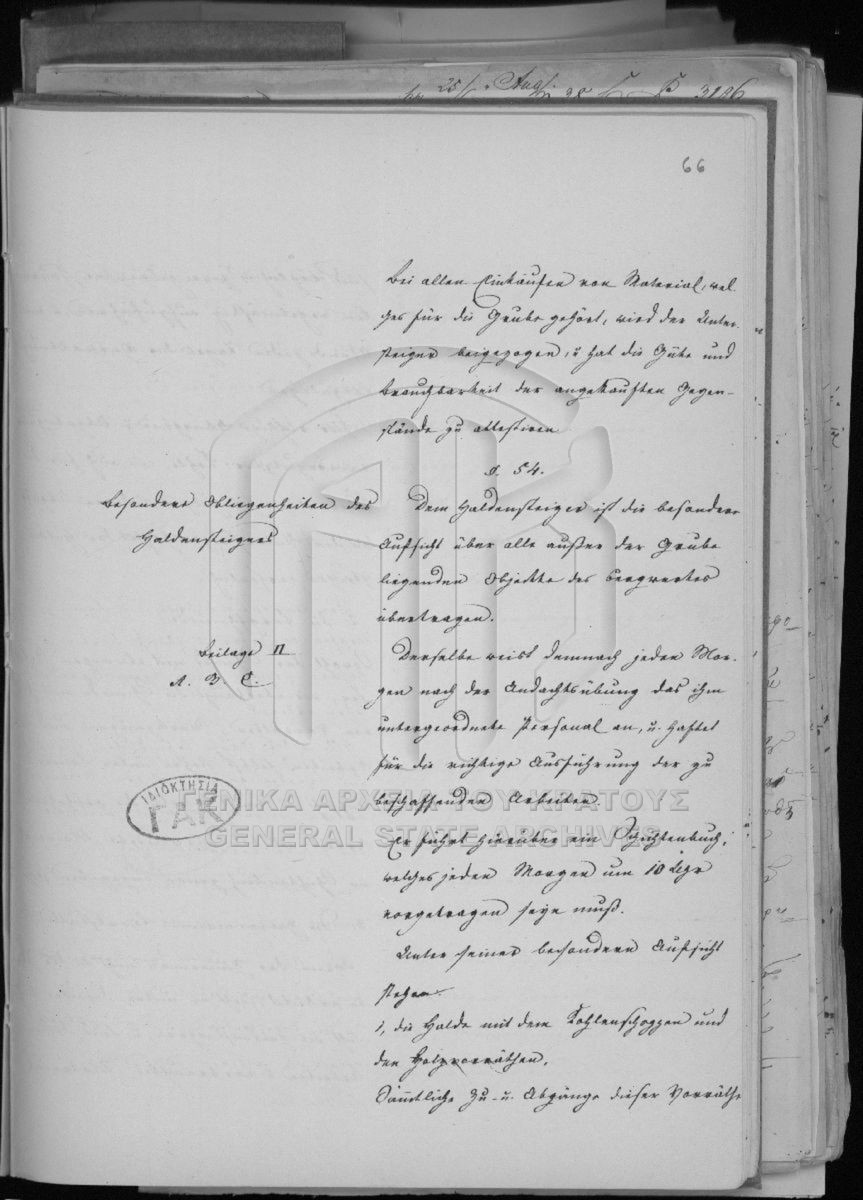 25/ Aug
3186
66
Bei allen Einkäufen von Material, wel-
ches für die Grube gehört, wird der Unter-
steiger beigezogen, u hat die Güte und
Brauchbarkeit der angekauften Gegen-
stände zu attestiren
§. 54.
Besondere Obliegenheiten des
Haldensteigers
Dem Haldensteiger ist die besondere
Aufsicht über alle außer der Grube
liegenden Objekte des Bergwerkes
übertragen.
Beilage II
A. B. C.
Derselbe weist demnach jeden Mor-
gen nach der Andachtsübung das ihm
untergeordnete Personal an, u. haftet
für die richtige Ausführung der zu
beschaffenden Arbeiten.
Er führt hierüber ein Schichtenbuch,
welches jeden Morgen um 10 Uhr
vorgetragen seyn muß.
Unter seiner besondern Aufsicht
stehen.
1, die Halde mit dem Kohlenschoppen und
den Holzvorräthen.
Sämmtliche Zu- u. Abgänge dieser Vorräthe
ΙΔΙΟΚΤΗΣΙΑ
ΓΑΚ
ΓΕΝΙΚΑ ΑΡΧΕΙΑ ΤΟΥ ΚΡΑΤΟΥΣ
GENERAL STATE ARCHIVES